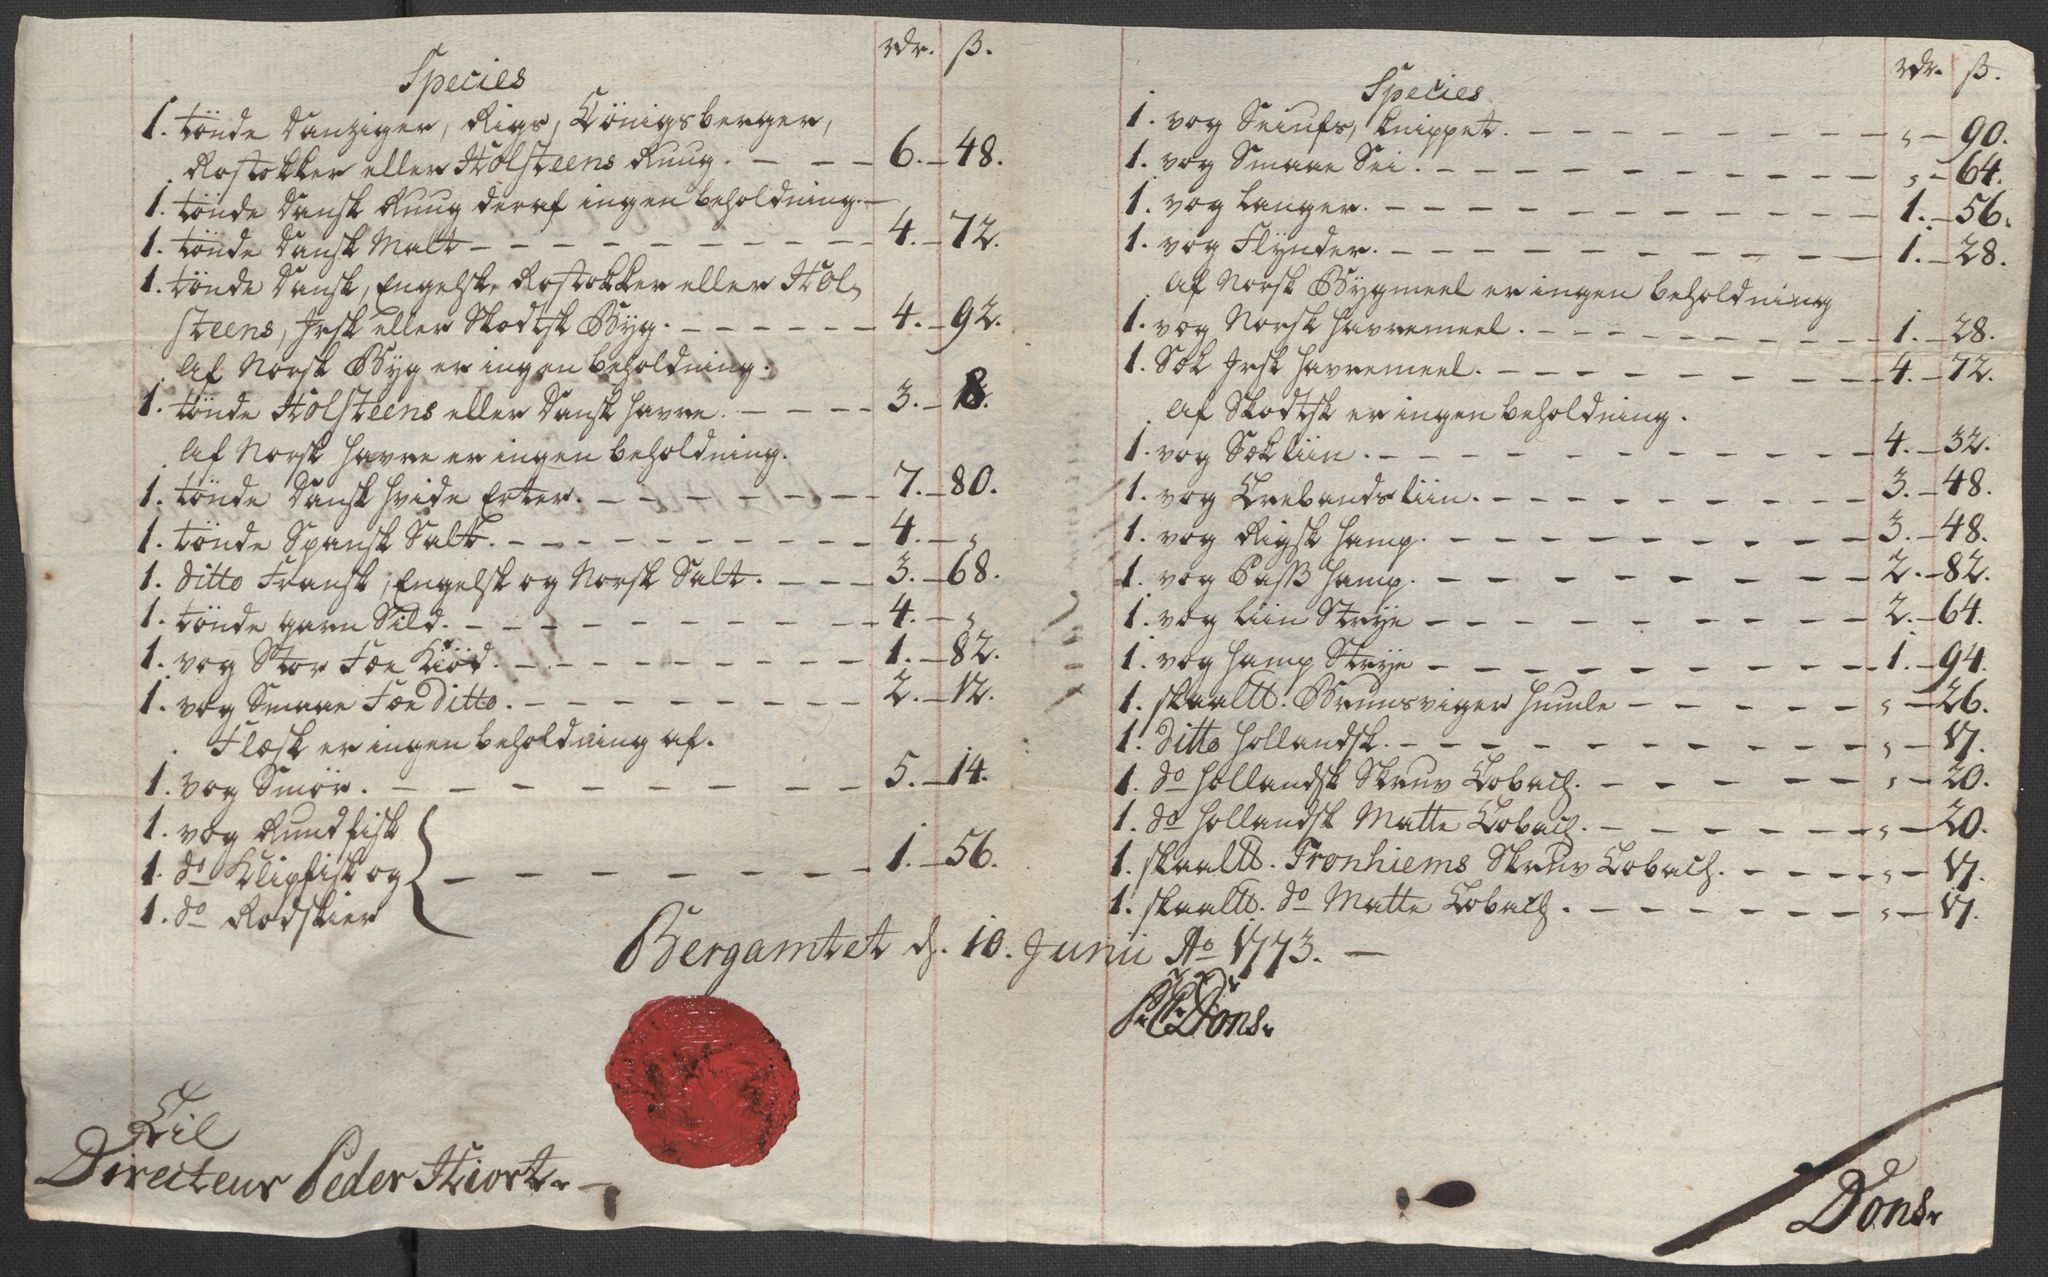 Species rdr. ß.
1. tönde Danziger, Rigs, Königsberger,
Rostokker eller Holsteens Ruug. 6. 48.
1. tönde Dansk Ruug deraf ingen beholdning.
1. tönde Dansk Malt 4. 72.
1. tönde Dansk, Engelsk, Rostokker eller Hol-
steens, Irsk eller Skodtsk Byg. 4. 92.
Af Norsk Byg er ingen beholdning.
1. tönde Holsteens eller Dansk havre. 3. 8.
Af Norsk havre er ingen beholdning.
1. tönde Dansk hvide Erter. 7. 80.
1. tönde Spansk Salt. 4. "
1. ditto Fransk, Engelsk og Norsk Salt. 3. 68.
1. tönde garn Sild. 4. "
1. vog Stor Fæe Kiöd. 1. 82.
1. vog Smaae Fæe Ditto. 2. 12.
Flæsk er ingen beholdning af.
1. vog Smör. 5. 14.
1. vog Rundfisk
1. do Klipfisk og 1. 56.
1. do Rodskier
Species rdr. ß.
1. vog Seiufs, knippet. " 90.
1. vog Smaae Sei. " 64.
1. vog Langer. 1. 56.
1. vog Flynder. 1. 28.
Af Norsk Bygmeel er ingen beholdning
1. vog Norsk havremeel. 1. 28.
1. Sæk Irsk havremeel. 4. 72.
Af Skodtsk er ingen beholdning.
1. vog Sækliin. 4. 32.
1. vog Trebandsliin. 3. 48.
1. vog Rigsk hamp. 3. 48.
1. vog Pass hamp. 2. 82.
1. vog liin Strye 2. 64.
1. vog hamp Strye 1. 94.
1. skaaltt. Brunsviger humle " 26.
1. Ditto hollandsk. " 17.
1. do hollandsk Skruv Tobach. " 20.
1. do hollandsk Matte Tobach. " 20.
1. skaaltt. Tronhiems Skruv Tobach. " 17.
1. skaaltt. do Matte Tobach. " 17.
Bergamtet d. 10. Junii Ao 1773.
Dons.
Til
Directeur Peder Hiort.
Dons.